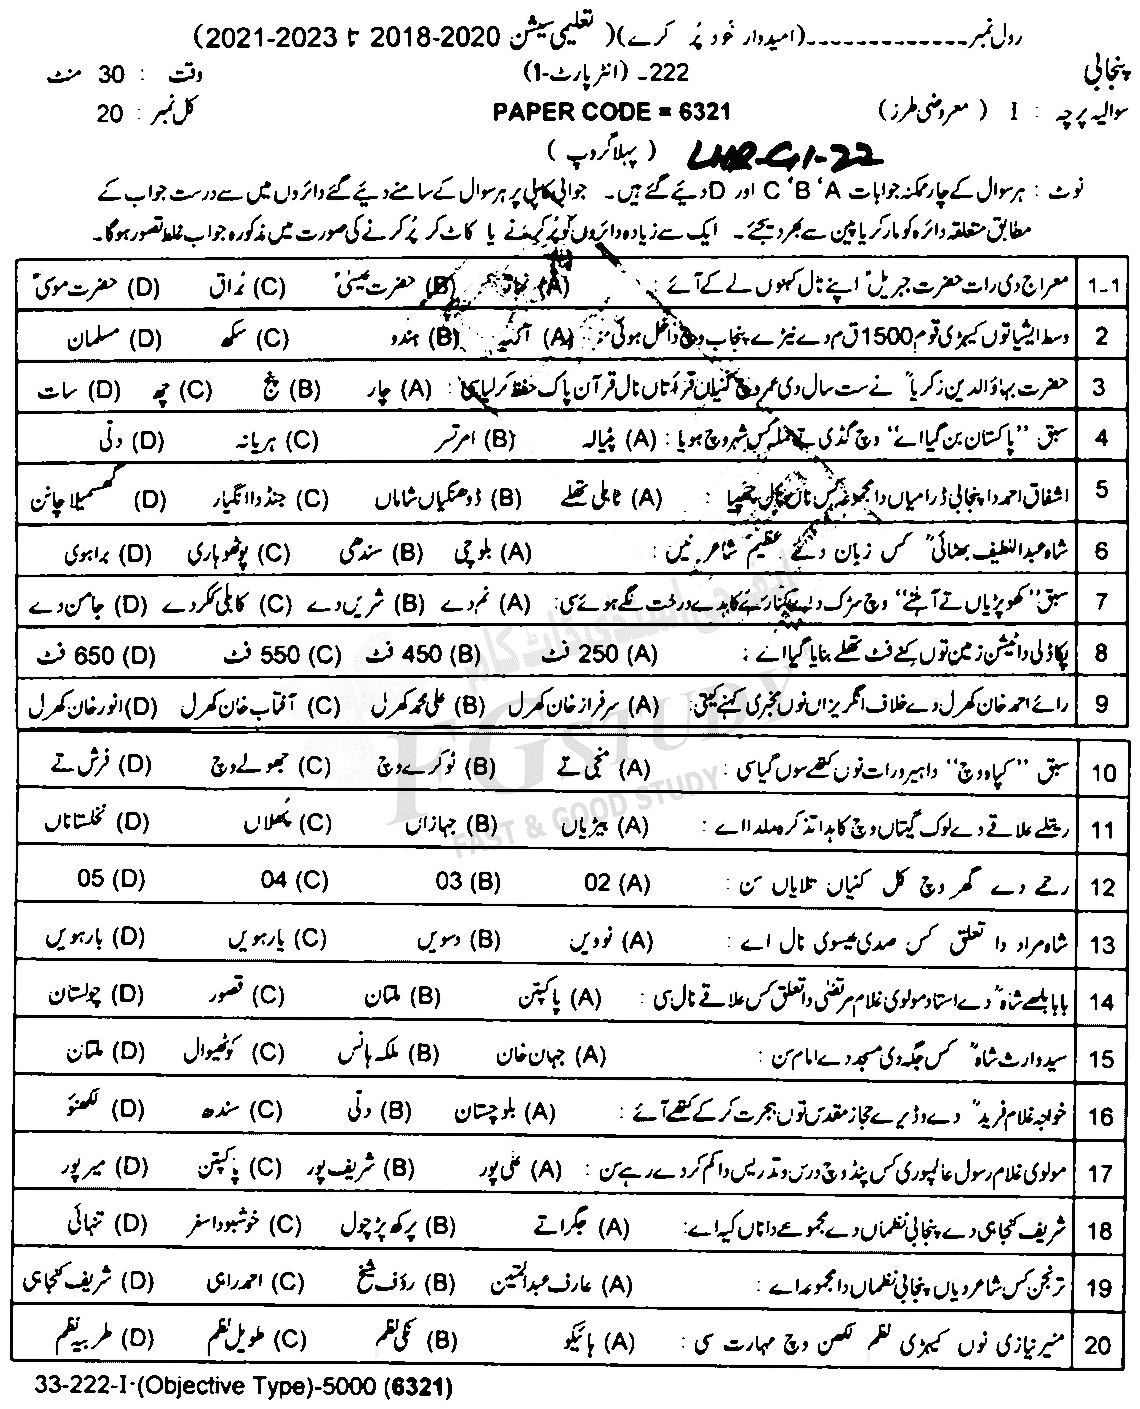 رول نمبر ------------- (امیدوار خود پُر کرے) (تعلیمی سیشن 2020-2018 تا 2023-2021)
پنجابی 222- (انٹر پارٹ-1) وقت : 30 منٹ
سوالیہ پرچہ : I (معروضی طرز) PAPER CODE = 6321 کل نمبر : 20
(پہلا گروپ) LHR-G1-22
نوٹ : ہر سوال کے چار ممکنہ جوابات A ‘B ‘C اور D دیئے گئے ہیں۔ جوابی کاپی پر ہر سوال کے سامنے دیئے گئے دائروں میں سے درست جواب کے
مطابق متعلقہ دائرہ کو مارکر یا پین سے بھر دیجئے۔ ایک سے زیادہ دائروں کو پُر کرنے یا کاٹ کر پُر کرنے کی صورت میں مذکورہ جواب غلط تصور ہوگا۔
1-1 معراج دی رات حضرت جبریلؑ اپنے نال کہنوں لے کے آئے : (A) (B) حضرت عیسیٰؑ (C) بُراق (D) حضرت موسیٰؑ
2 وسط ایشیا توں کیہڑی قوم 1500 ق م دے نیڑے پنجاب وچ داخل ہوئی (A) (B) ہندو (C) سکھ (D) مسلمان
3 حضرت بہاؤالدین زکریاؒ نے ست سال دی عمر وچ کنیاں قرأتاں نال قرآن پاک حفظ کر لیا سی : (A) چار (B) پنج (C) چھ (D) سات
4 سبق "پاکستان بن گیا اے" وچ گڈی تے حملہ کس شہر وچ ہویا : (A) پٹیالہ (B) امرتسر (C) ہریانہ (D) دلی
5 اشفاق احمد دا پنجابی ڈرامیاں دا مجموعہ کس ناں نال چھپیا : (A) ٹاہلی تھلے (B) ڈوہنگیاں شاماں (C) جنڈ دا انگیار (D) گھسمیلا چانن
6 شاہ عبداللطیف بھٹائیؒ کس زبان دے عظیم شاعر نیں : (A) بلوچی (B) سندھی (C) پوٹھوہاری (D) براہوی
7 سبق "کھوپڑیاں تے آہلنے" وچ سڑک دے کنارے کاہدے درخت لگے ہوئے سی : (A) نم دے (B) شریں دے (C) کابلی ککر دے (D) جامن دے
8 پکاڈلی دا سٹیشن زمین توں کِنے فٹ تھلے بنایا گیا اے : (A) 250 فٹ (B) 450 فٹ (C) 550 فٹ (D) 650 فٹ
9 رائے احمد خان کھرل دے خلاف انگریزاں نوں مخبری کہنے کیتی : (A) سرفراز خان کھرل (B) علی محمد کھرل (C) آفتاب خان کھرل (D) انور خان کھرل
10 سبق "کپاہ وچ" دا ہیرو رات نوں کتھے سوں گیا سی : (A) منجی تے (B) ٹوکرے وچ (C) جھولے وچ (D) فرش تے
11 ریتلے علاقے دے لوک گیتاں وچ کاہدا تذکرہ ملدا اے : (A) بیڑیاں (B) جہازاں (C) پُھلاں (D) نخلستاناں
12 رحمے دے گھر وچ کل کنیاں تلایاں سن : (A) 02 (B) 03 (C) 04 (D) 05
13 شاہ مراد دا تعلق کس صدی عیسوی نال اے : (A) نوویں (B) دسویں (C) یارہویں (D) بارہویں
14 بابا بلھے شاہؒ دے استاد مولوی غلام مرتضیٰ دا تعلق کس علاقے نال سی : (A) پاکپتن (B) ملتان (C) قصور (D) چولستان
15 سید وارث شاہؒ کس جگہ دی مسجد دے امام سن : (A) جہان خان (B) ملکہ ہانس (C) کوٹھیوال (D) ملتان
16 خواجہ غلام فریدؒ دے وڈیرے حجاز مقدس توں ہجرت کر کے کتھے آئے : (A) بلوچستان (B) دلی (C) سندھ (D) لکھنؤ
17 مولوی غلام رسول عالمپوری کس پنڈ وچ درس و تدریس دا کم کردے رہے سن : (A) علی پور (B) شریف پور (C) پاکپتن (D) میر پور
18 شریف کنجاہی دے پنجابی نظماں دے مجموعے دا ناں کیہ اے : (A) جگراتے (B) پرکھ پڑچول (C) خوشبو دا سفر (D) تنہائی
19 ترنجن کس شاعر دیاں پنجابی نظماں دا مجموعہ اے : (A) عارف عبدالمتین (B) رؤف شیخ (C) احمد راہی (D) شریف کنجاہی
20 منیر نیازی نوں کیہڑی نظم لکھن وچ مہارت سی : (A) ہائیکو (B) نکی نظم (C) طویل نظم (D) طربیہ نظم
33-222-I-(Objective Type)-5000 (6321)
FG STUDY
FAST & GOOD STUDY